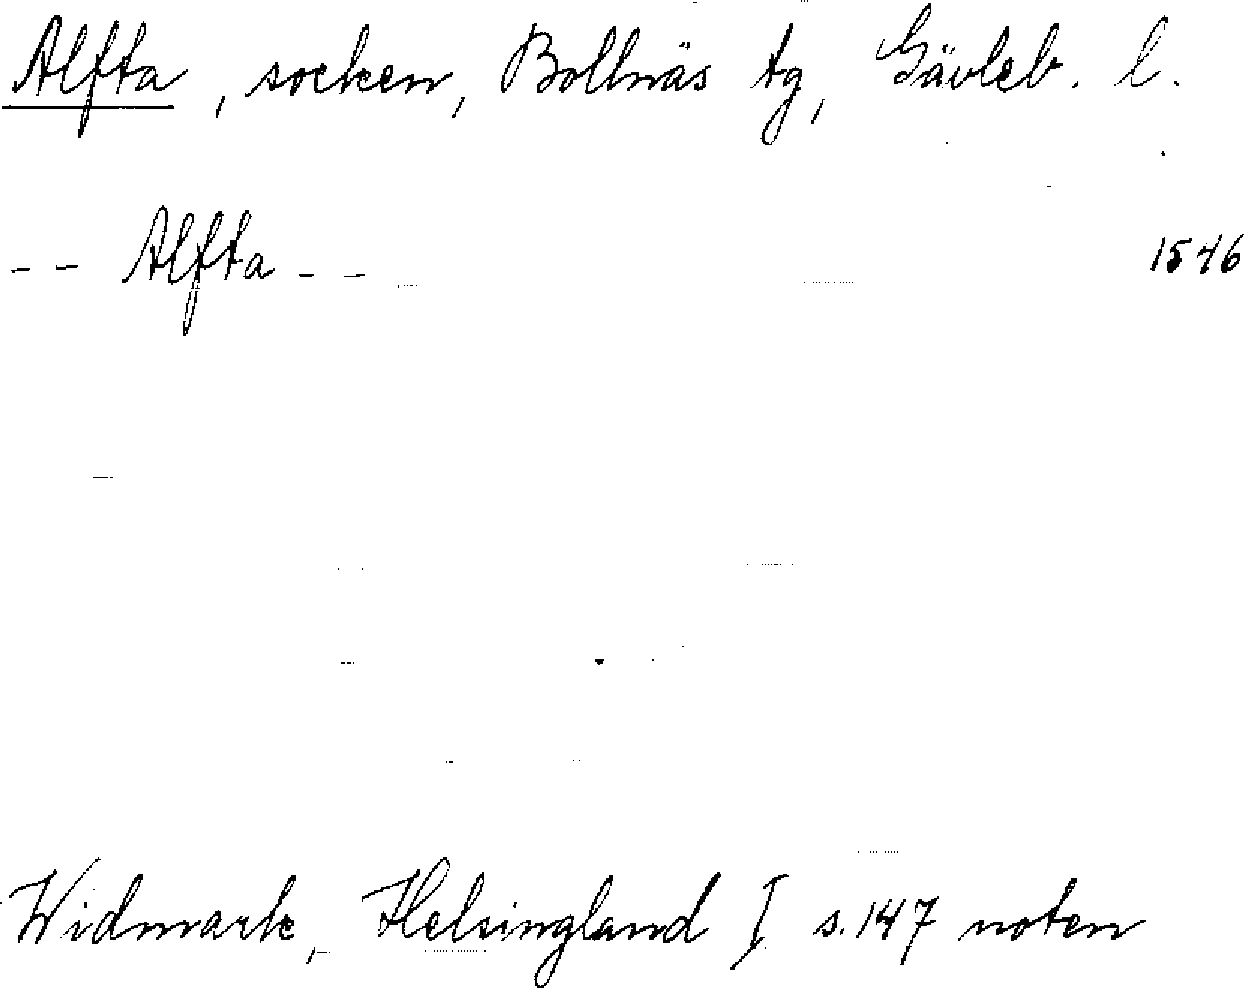 Alfta, socken, Bollnäs tg, Gävleb. l.
-- Alfta -- 1546
Widmark, Helsingland I s. 147 noten